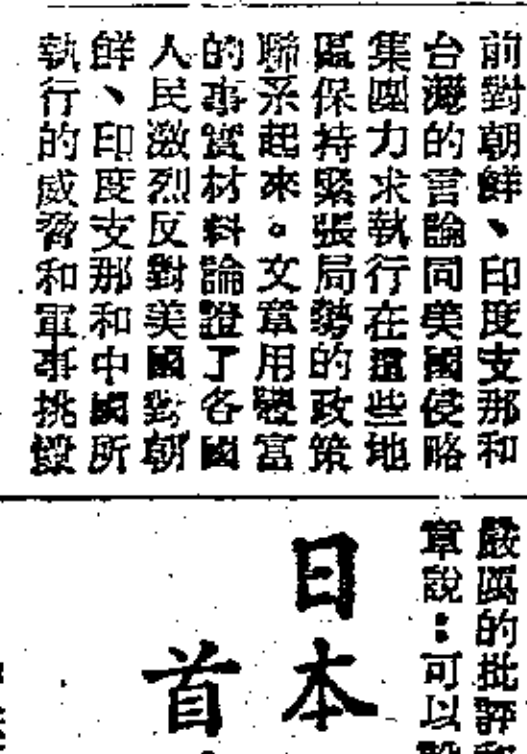 前對朝鮮、印度支那和
台灣的言論同美國侵略
集團力求執行在這些地
區保持緊張局勢的政策
聯系起來。文章用豐富
的事實材料論證了各國
人民激烈反對美國對朝
鮮、印度支那和中國所
執行的威脅和軍事挑釁
嚴厲的批評和
章說：可以
日本
首